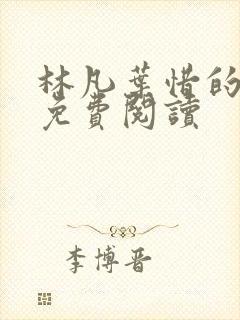 林凡葉惜的
免費閱讀
李博晉